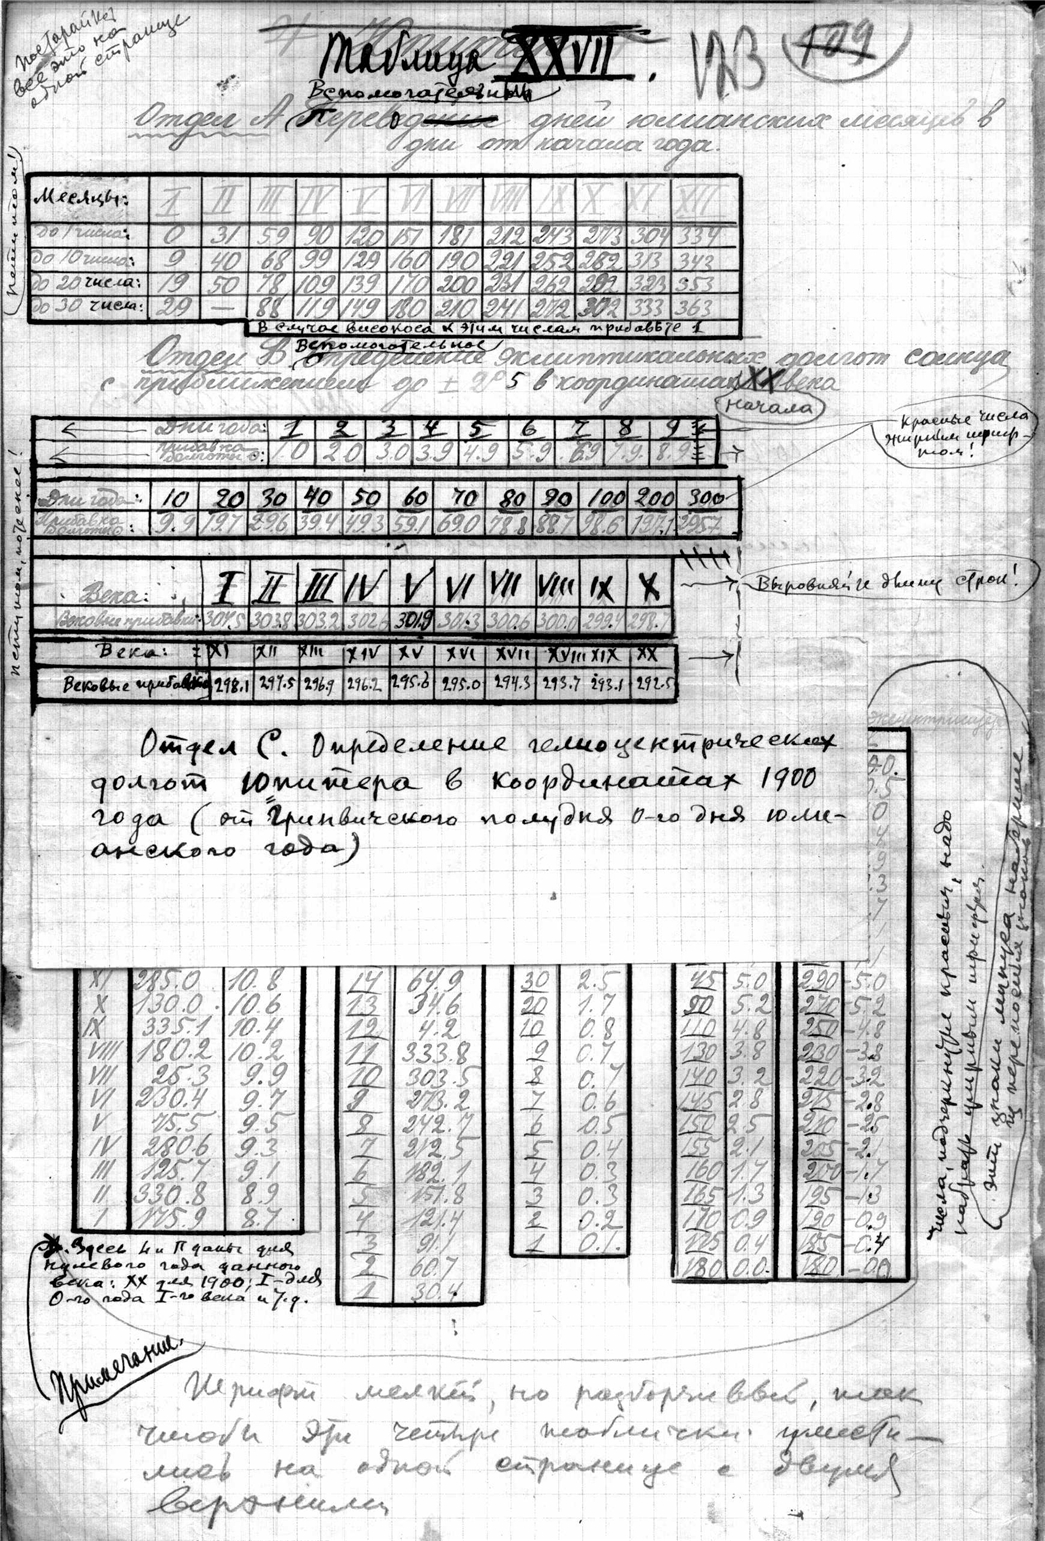 Постарайтесь
все это на
одной странице
Таблица XXVII.
123
109
Вспомогательный
Отдел А. Перевод дней юлианских месяцев в
дни от начала года.
петитом!
Месяцы: I II III IV V VI VII VIII IX X XI XII
до 1 числа: 0 31 59 90 120 151 181 212 243 273 304 334
до 10 числа: 9 40 68 99 129 160 190 221 252 282 313 343
до 20 числа: 19 50 78 109 139 170 200 231 262 292 323 353
до 30 числа: 29 — 88 119 149 180 210 241 272 302 333 363
В случае високоса к этим числам прибавьте 1
Вспомогательное
Отдел В. Определение эклиптикальных долгот солнца
с приближением до ± 2° 5 в координатах XX века
начала
Дни года: 1 2 3 4 5 6 7 8 9
Прибавка долготы ⊙: 1.0 2.0 3.0 3.9 4.9 5.9 6.9 7.9 8.9
Красные числа
жирным шриф-
том!
Дни года: 10 20 30 40 50 60 70 80 90 100 200 300
Прибавка долготы ⊙: 9.9 19.7 29.6 39.4 49.3 59.1 69.0 78.8 88.7 98.6 197.1 295.7
Века: I II III IV V VI VII VIII IX X
Вековые прибавки: 304.5 303.8 303.2 302.6 301.9 301.3 300.6 300.0 299.4 298.7
Выровняйте длину строк!
Века: XI XII XIII XIV XV XVI XVII XVIII XIX XX
Вековые прибавки 298.1 297.5 296.9 296.2 295.6 295.0 294.3 293.7 293.1 292.5
Отдел С. Определение гелиоцентрических
долгот Юпитера в координатах 1900
года (от Гринвичского полудня 0-го дня юли-
анского года)
XI 285.0 10.8 14 64.9 30 2.5 45 5.0 290 -5.0
X 130.0 10.6 13 34.6 20 1.7 90 5.2 270 -5.2
IX 335.1 10.4 12 4.2 10 0.8 110 4.8 250 -4.8
VIII 180.2 10.2 11 333.8 9 0.7 130 3.8 230 -3.8
VII 25.3 9.9 10 303.5 8 0.7 140 3.2 220 -3.2
VI 230.4 9.7 9 273.2 7 0.6 145 2.8 215 -2.8
V 75.5 9.5 8 242.7 6 0.5 150 2.5 210 -2.5
IV 280.6 9.3 7 212.5 5 0.4 155 2.1 205 -2.1
III 125.7 9.1 6 182.1 4 0.3 160 1.7 200 -1.7
II 330.8 8.9 5 151.8 3 0.3 165 1.3 195 -1.3
I 175.9 8.7 4 121.4 2 0.2 170 0.9 190 -0.9
3 91.1 1 0.1 175 0.4 185 -0.4
2 60.7 180 0.0 180 -0.0
1 30.4
Здесь L и П даны для
нулевого года данного
века: XX для 1900, I-для
0-го года I-го века и т.д.
Примечание.
Числа, подчеркнутые красным, надо
набрать жирным шрифтом.
Эти знаки минуса
Шрифт мелкий, но разборчивый, так
чтобы эти четыре таблички умести-
лись на одной странице с двумя
верхними